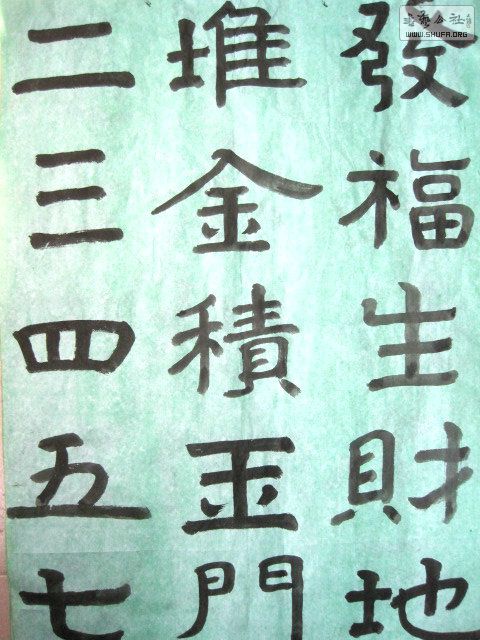 發福生財地
堆金積玉門
二三四五七
書藝公社
WWW.SHUFA.ORG